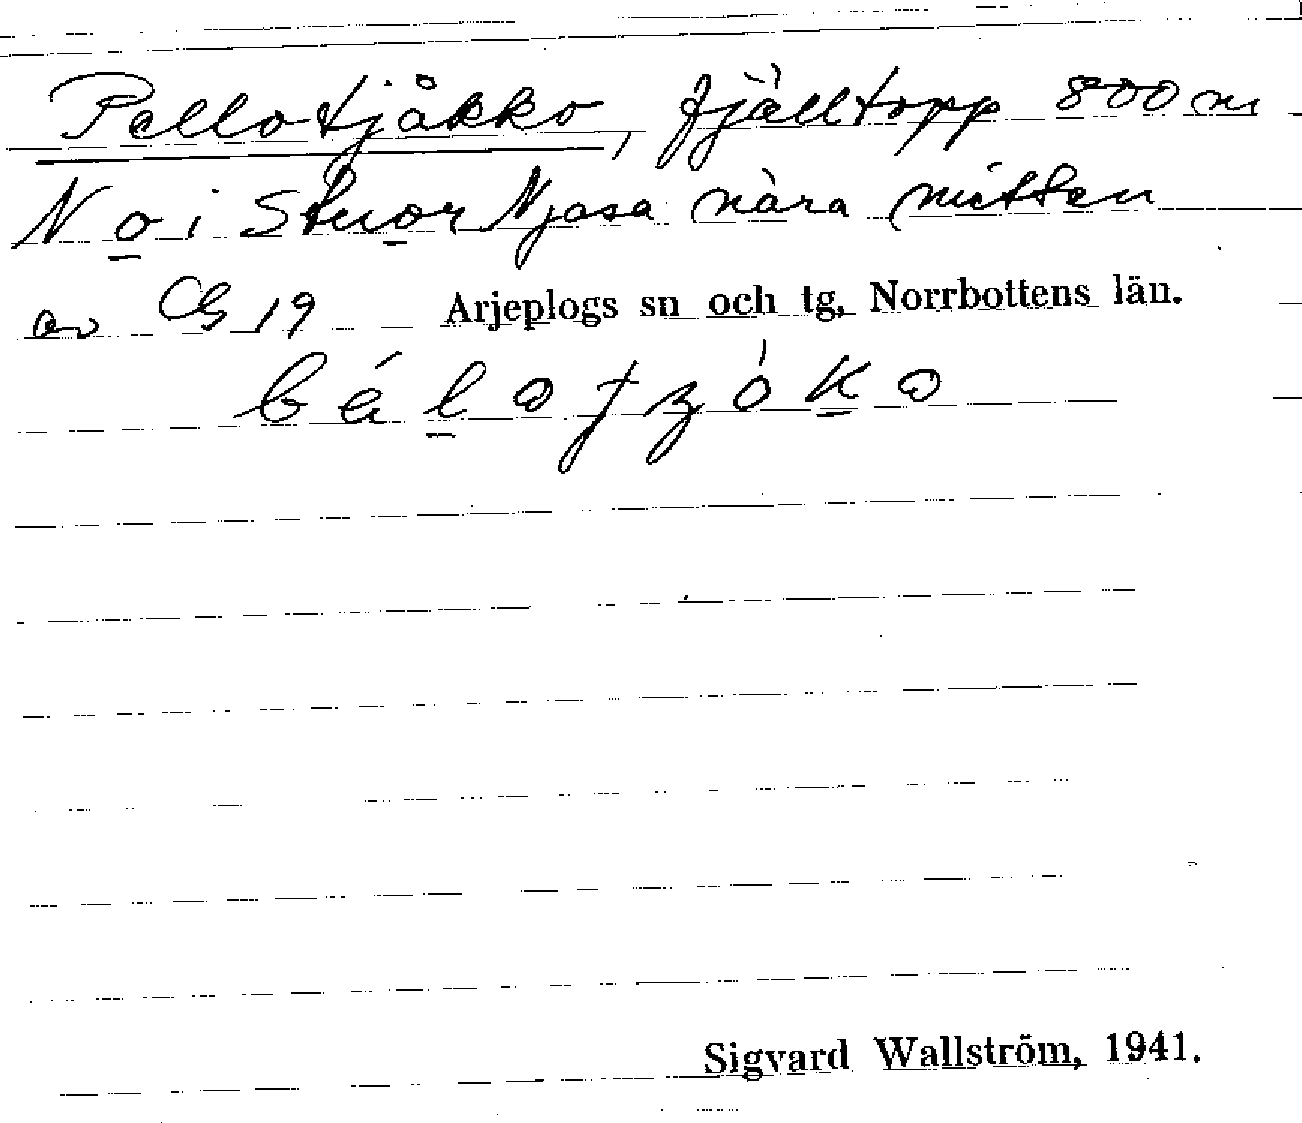 Pellotjåkko, fjälltopp 800 m
N o i Stuor Njasa nära mitten
av CG 19 Arjeplogs sn och tg, Norrbottens län.
Sigvard Wallström, 1941.